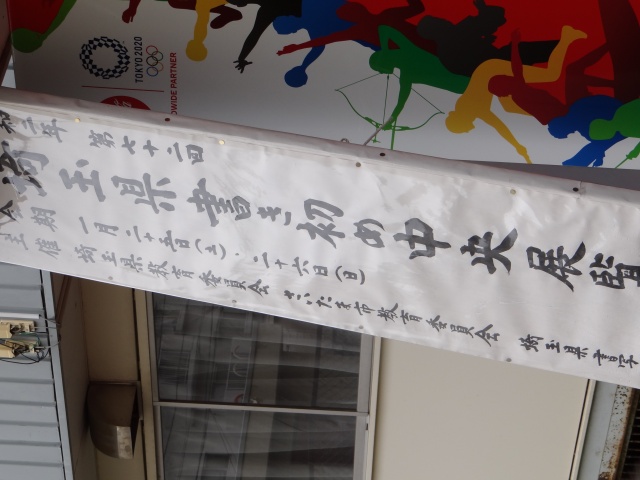 TOKYO 2020
DWIDE PARTNER
和二年 第七十二回
埼玉県書き初め中央展覧
会期 一月二十五日(土)・二十六日(日)
主催 埼玉県教育委員会 さいたま市教育委員会 埼玉県書写